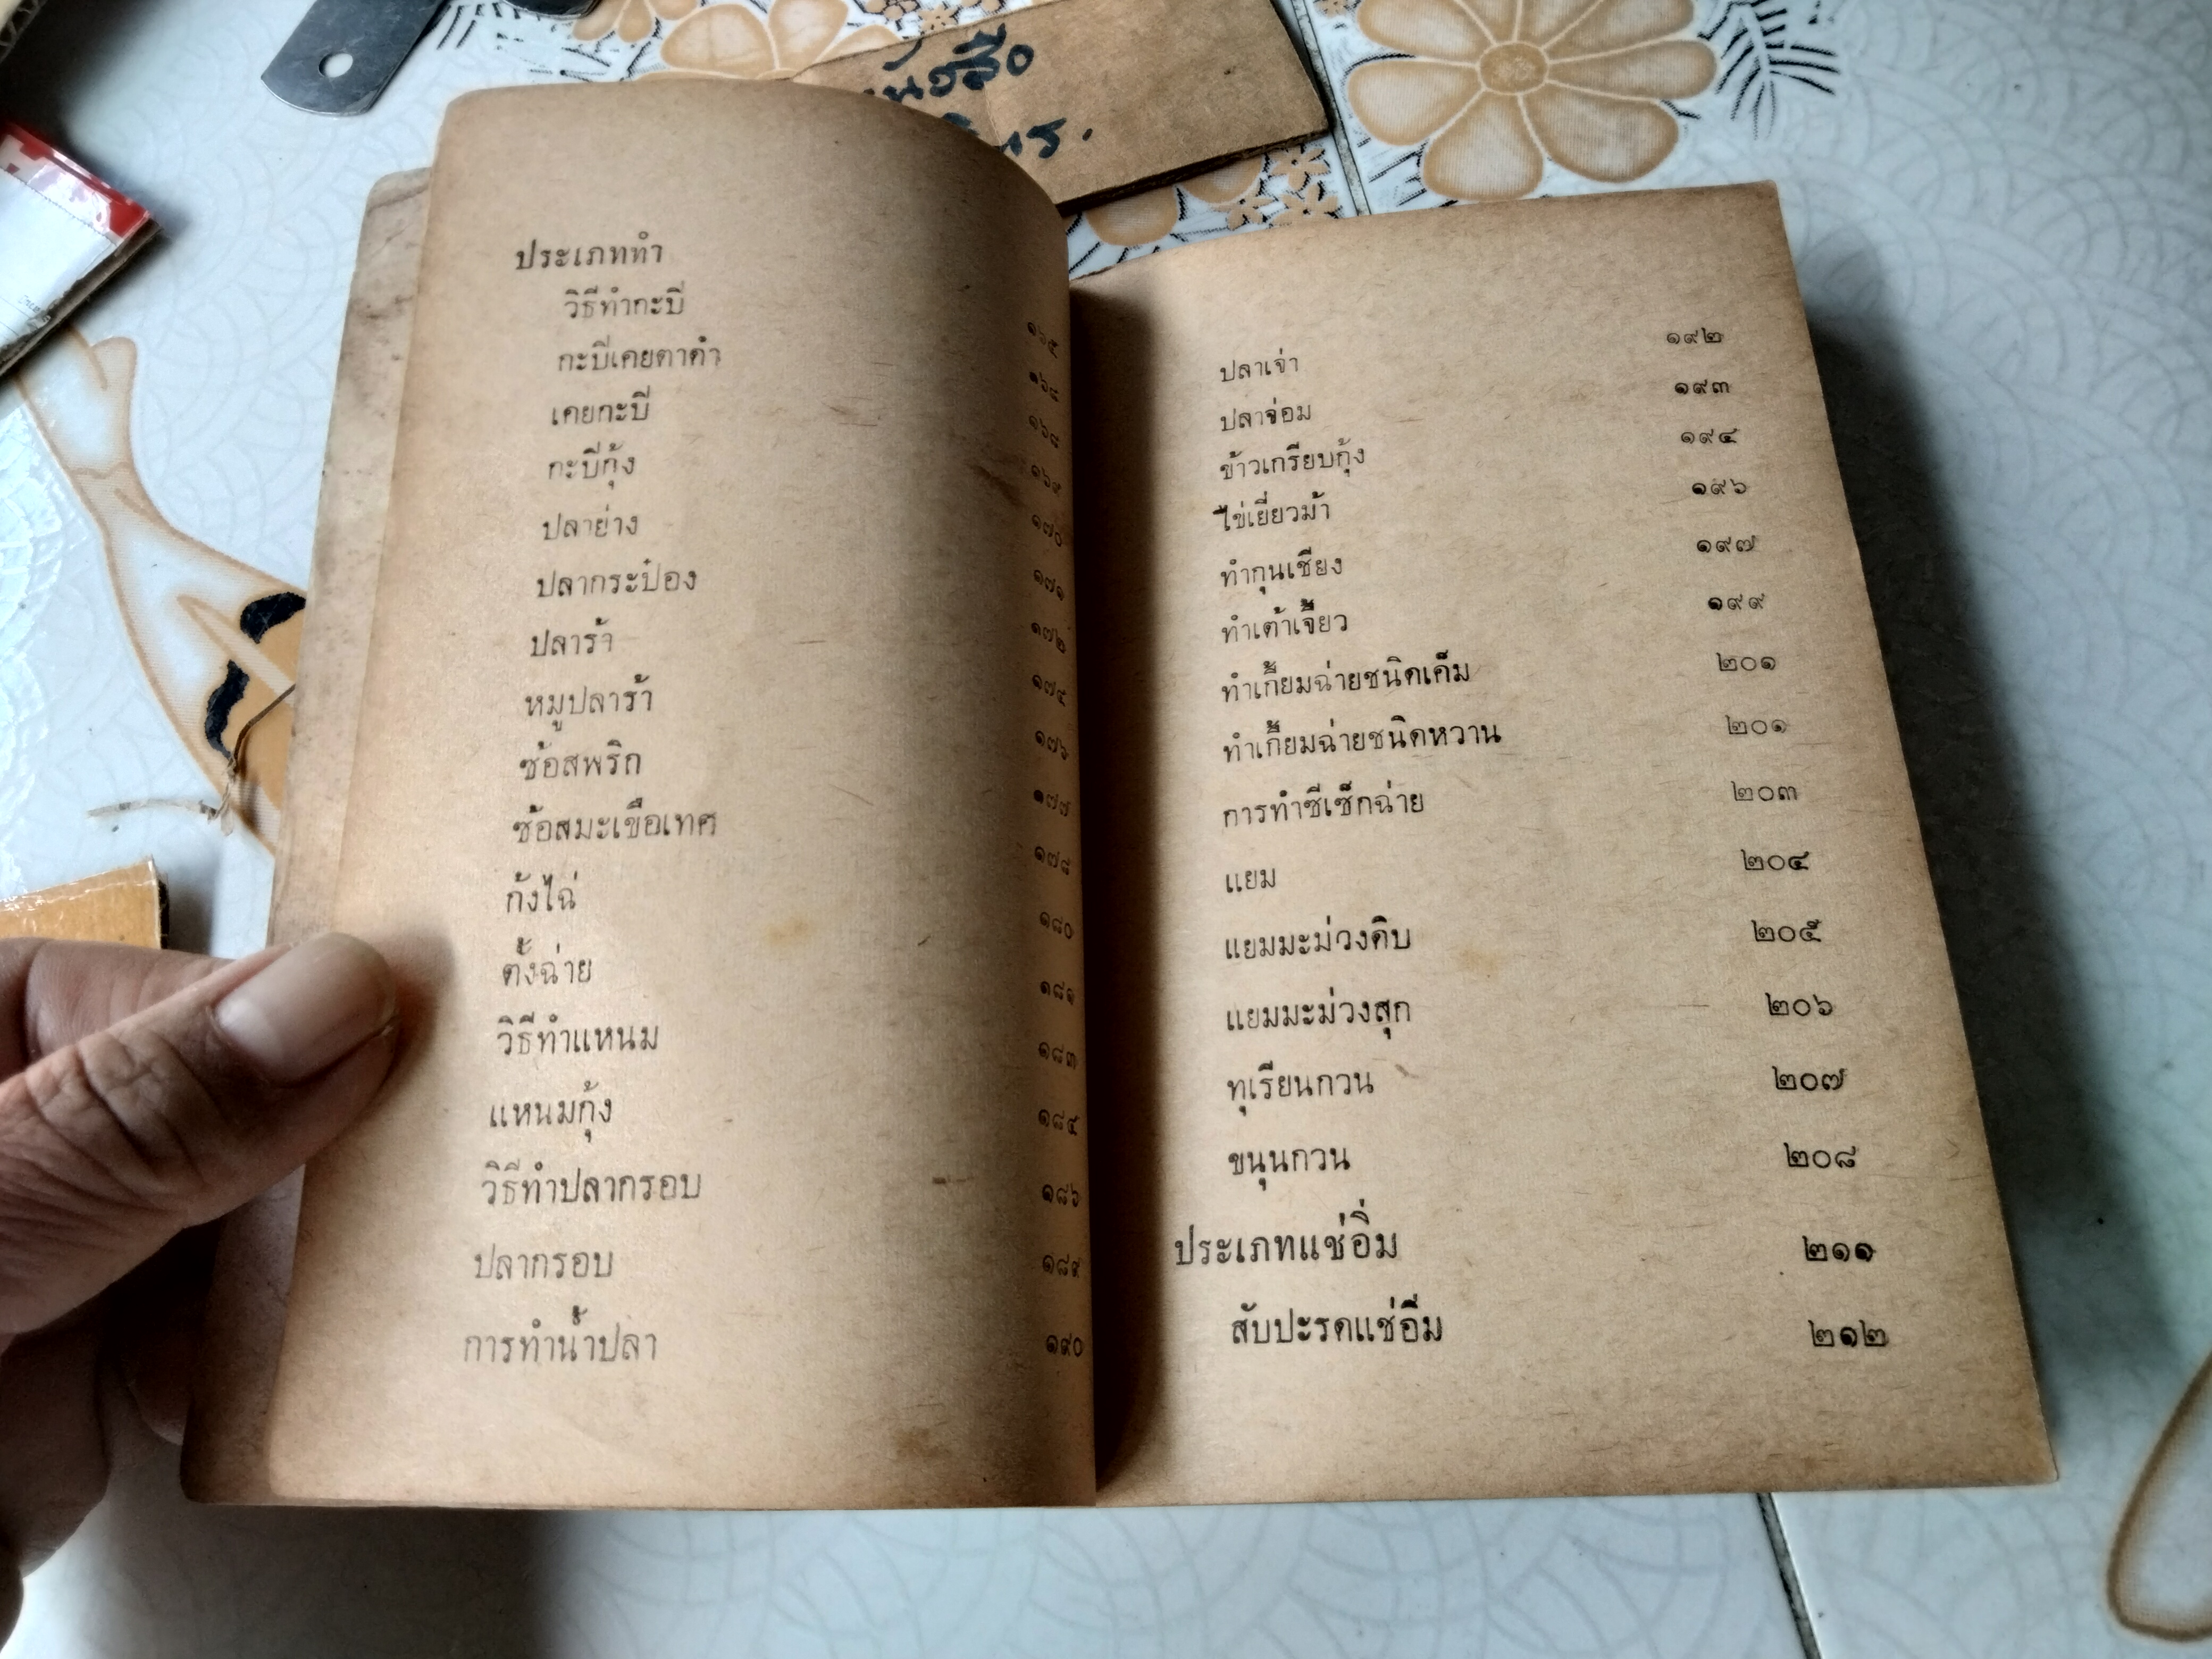 ประเภททำ ๑๖๕
วิธีทำกะปิ ๑๖๘
กะปิเคยตาดำ ๑๖๘
เคยกะปิ ๑๖๙
กะปิกุ้ง ๑๗๐
ปลาย่าง ๑๗๑
ปลากระป๋อง ๑๗๒
ปลาร้า ๑๗๔
หมูปลาร้า ๑๗๖
ซ้อสพริก ๑๗๗
ซ้อสมะเขือเทศ ๑๗๘
กังไฉ่ ๑๘๐
ตั้งฉ่าย ๑๘๑
วิธีทำแหนม ๑๘๓
แหนมกุ้ง ๑๘๔
วิธีทำปลากรอบ ๑๘๖
ปลากรอบ ๑๘๙
การทำน้ำปลา ๑๙๐
ปลาเจ่า ๑๙๒
ปลาจ่อม ๑๙๓
ข้าวเกรียบกุ้ง ๑๙๔
ไข่เยี่ยวม้า ๑๙๖
ทำกุนเชียง ๑๙๗
ทำเต้าเจี้ยว ๑๙๙
ทำเกี้ยมฉ่ายชนิดเค็ม ๒๐๑
ทำเกี้ยมฉ่ายชนิดหวาน ๒๐๑
การทำซีเซ็กฉ่าย ๒๐๓
แยม ๒๐๔
แยมมะม่วงดิบ ๒๐๕
แยมมะม่วงสุก ๒๐๖
ทุเรียนกวน ๒๐๗
ขนุนกวน ๒๐๘
ประเภทแช่อิ่ม ๒๑๑
สับปะรดแช่อิ่ม ๒๑๒